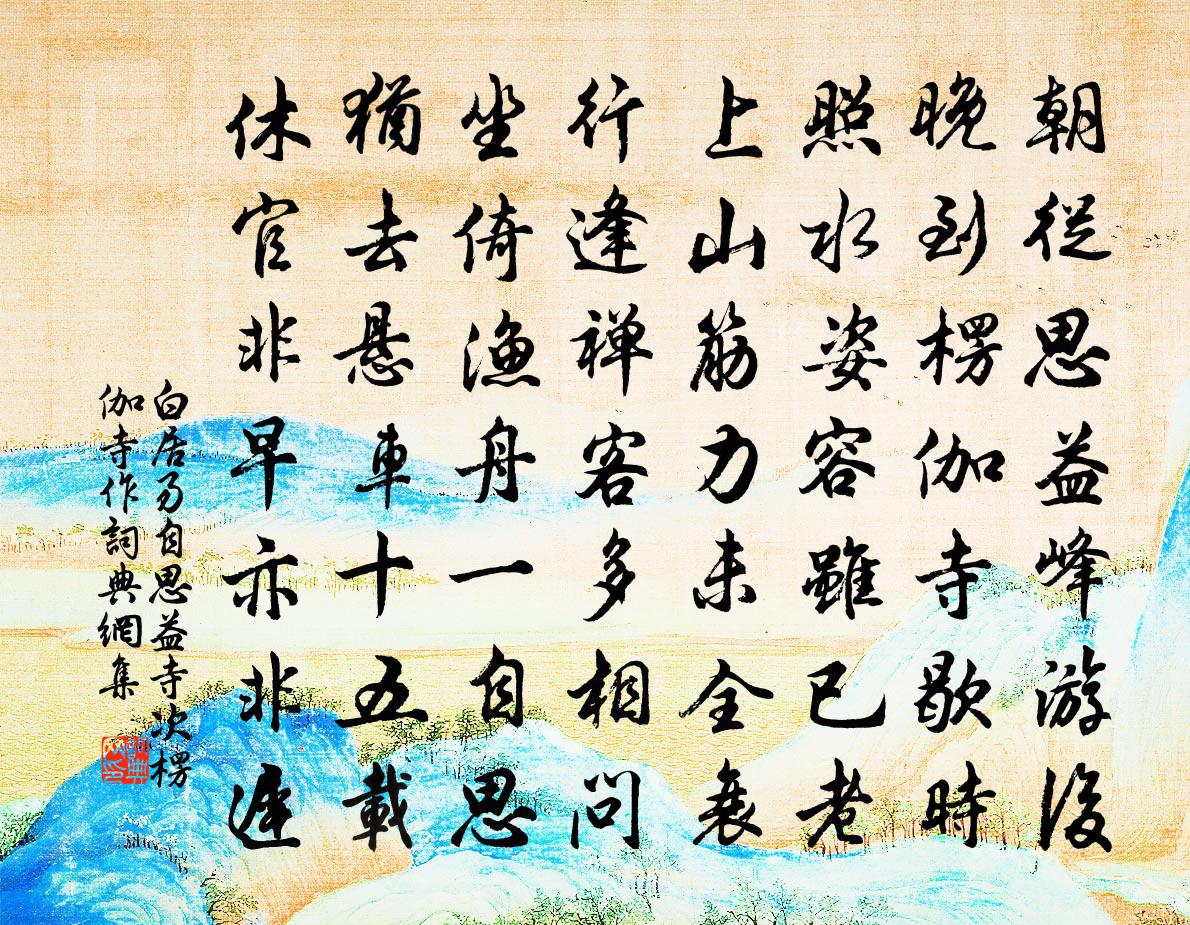 朝從思益峰游後
晚到楞伽寺歇時
照水姿容雖已老
上山筋力未全衰
行逢禅客多相問
坐倚漁舟一自思
猶去悬車十五載
休官非早亦非遲
白居易自思益寺次楞
伽寺作詞典網集